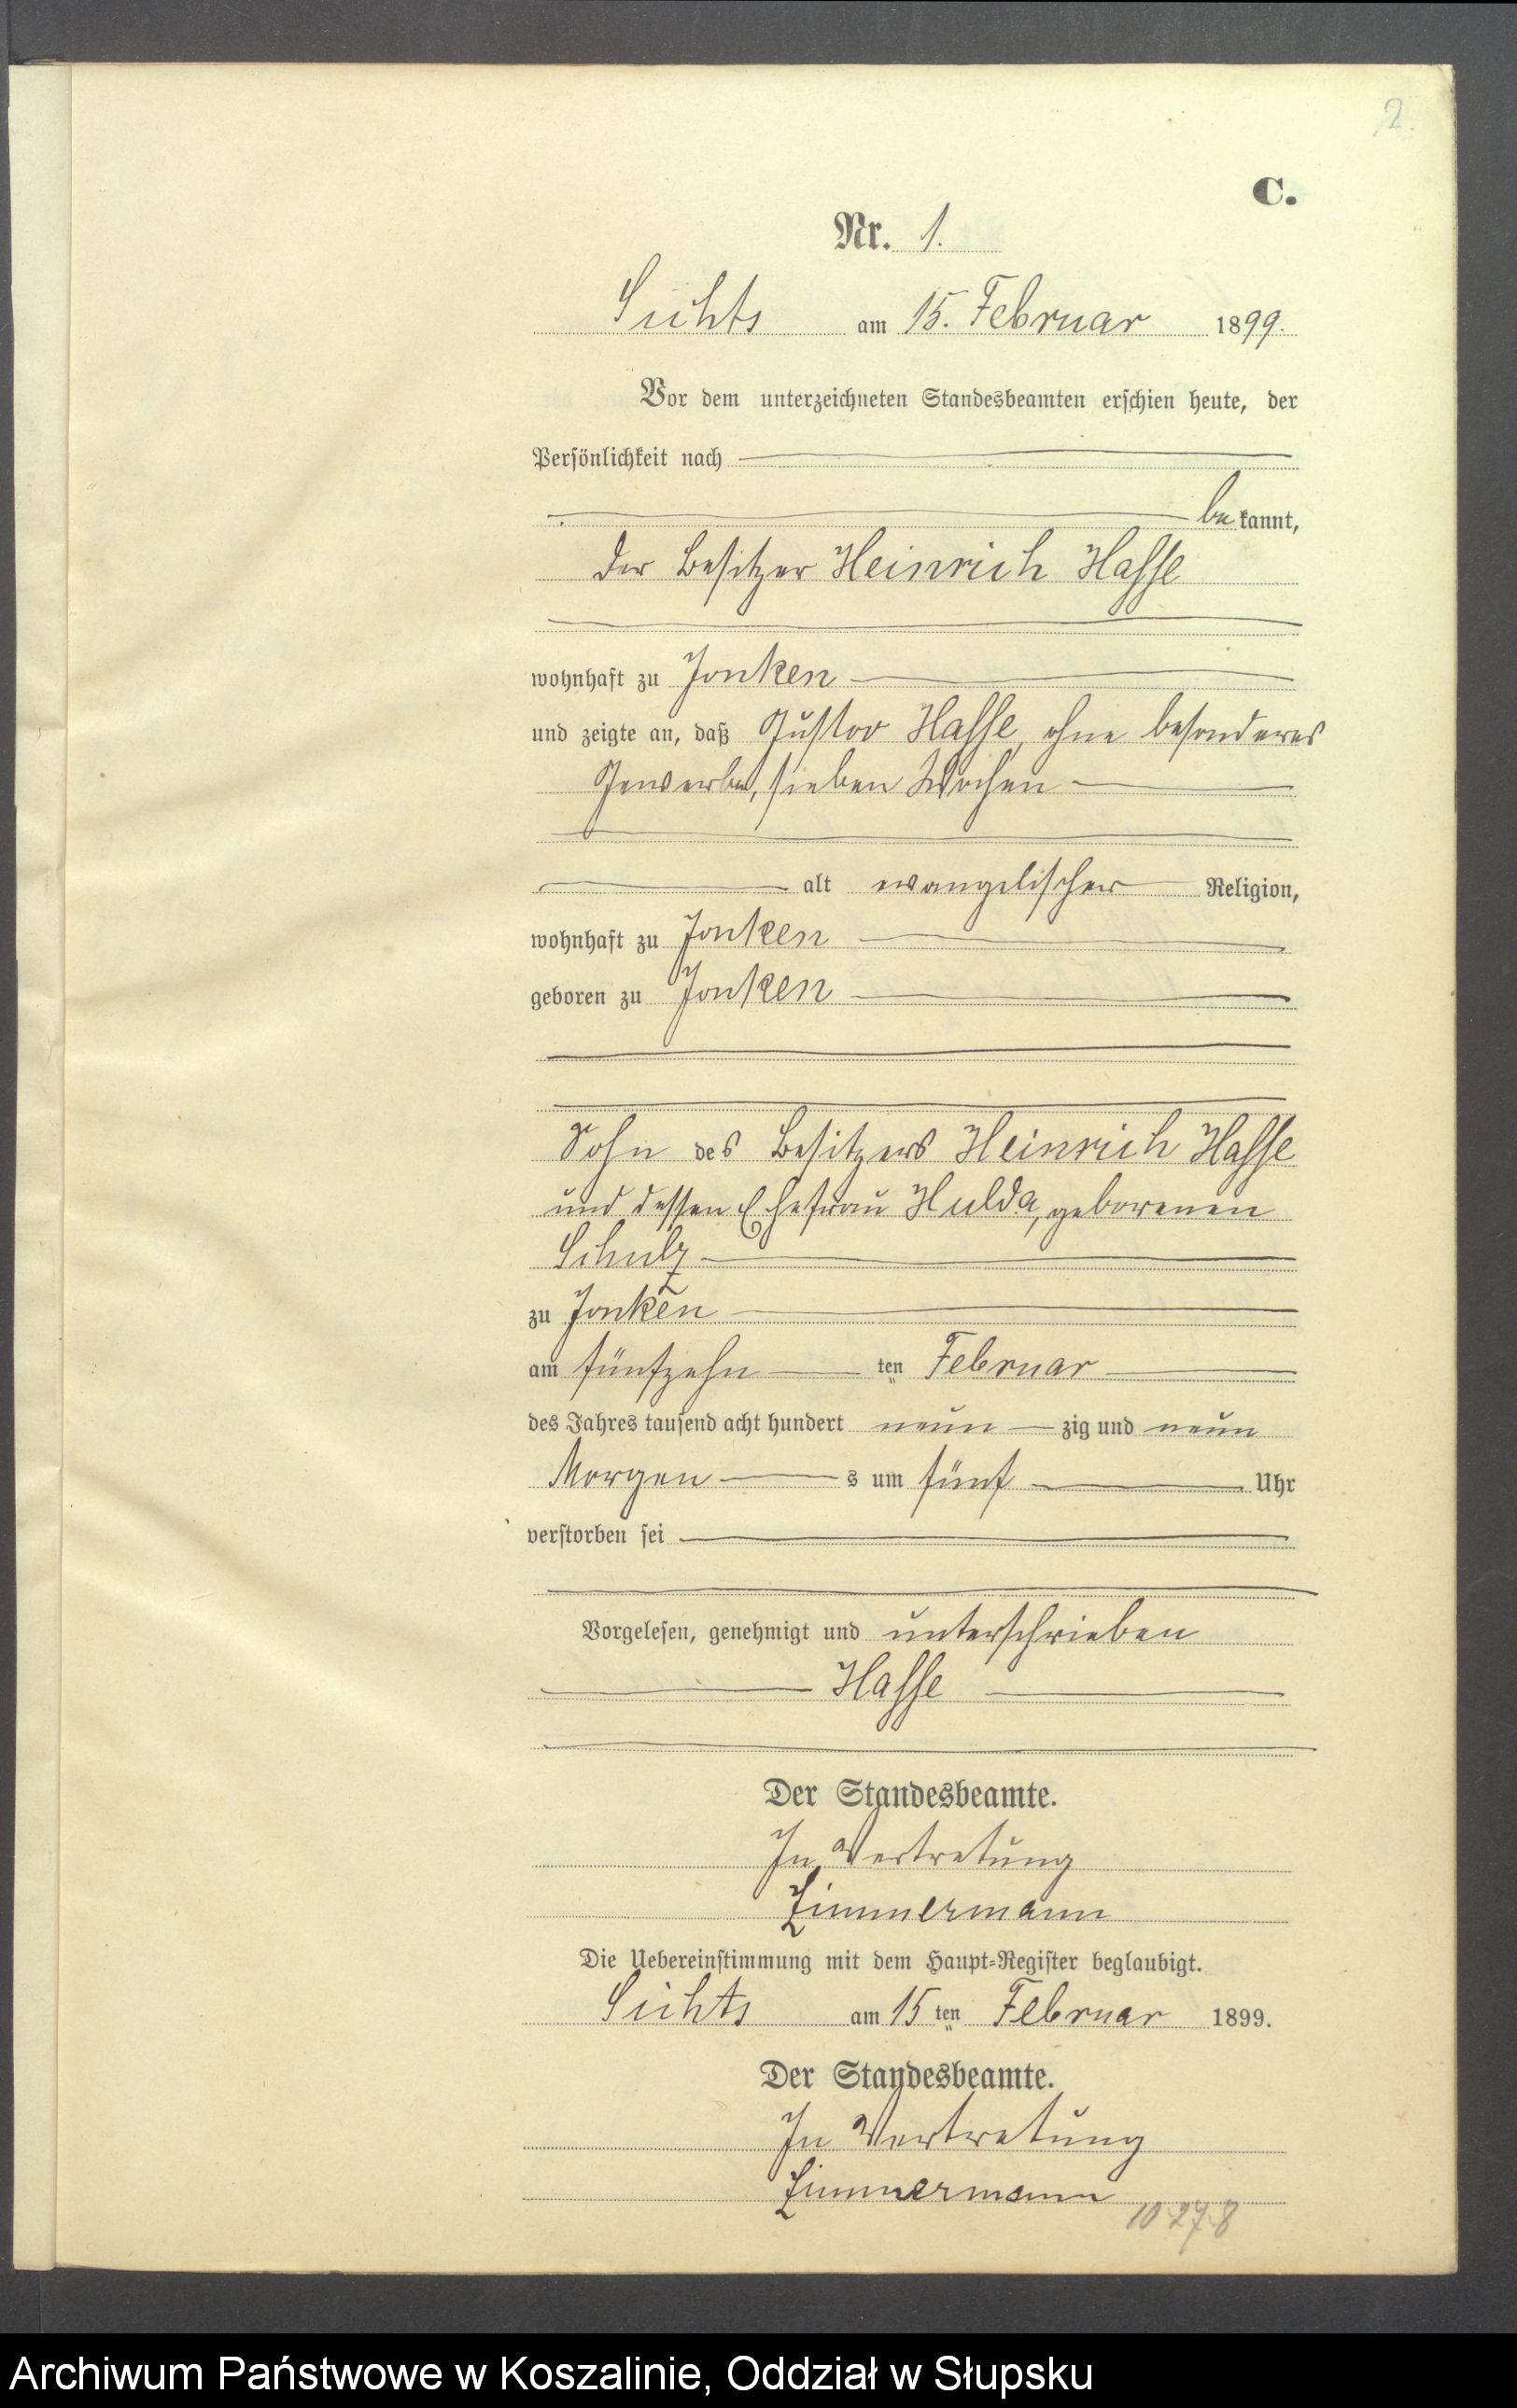 2.
C.
Nr. 1.
Sichts am 15. Februar 1899.
Vor dem unterzeichneten Standesbeamten erschien heute, der
Persönlichkeit nach
be kannt,
der Besitzer Heinrich Hasse
wohnhaft zu Jonken
und zeigte an, daß Gustav Hasse, ohne besonderes
Gewerbe, sieben Wochen
alt evangelischer Religion,
wohnhaft zu Jonken
geboren zu Jonken
Sohn des Besitzers Heinrich Hasse
und dessen Ehefrau Hulda, geborenen
Schulz
zu Jonken
am fünfzehn ten Februar
des Jahres tausend acht hundert neun zig und neun
Morgen s um fünf Uhr
verstorben sei
Vorgelesen, genehmigt und unterschrieben
Hasse
Der Standesbeamte.
In Vertretung
Zimmermann
Die Uebereinstimmung mit dem Haupt-Register beglaubigt.
Sichts am 15 ten Februar 1899.
Der Standesbeamte.
In Vertretung
Zimmermann
10278
Archiwum Państwowe w Koszalinie, Oddział w Słupsku